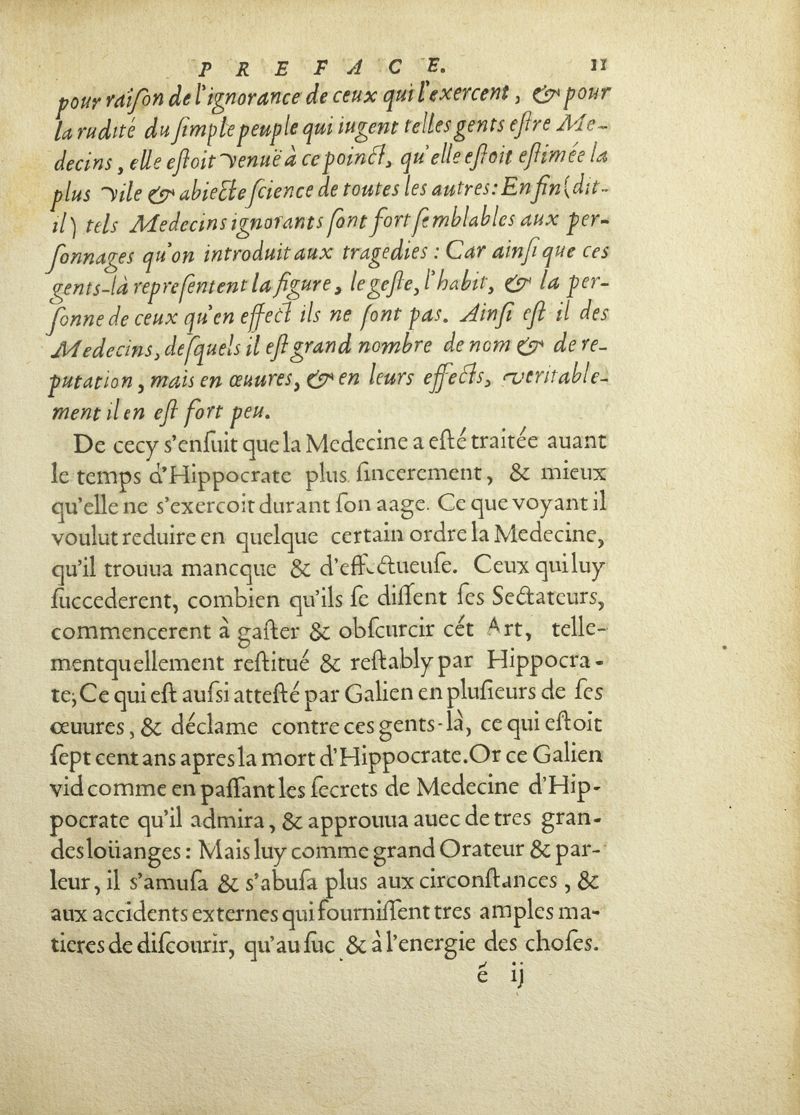 PREFACE. 11
pour raiſon de l'ignorance de ceux qui l'exercent, & pour
la rudité du ſimple peuple qui iugent telles gents eſtre Me-
decins, elle eſtoit venuë à ce poinct, qu'elle eſtoit eſtimée la
plus vile & abiecte ſcience de toutes les autres: En fin (dit-
il) tels Medecins ignorants ſont fort ſemblables aux per-
ſonnages qu'on introduit aux tragedies: Car ainſi que ces
gents-là repreſentent la figure, le geſte, l'habit, & la per-
ſonne de ceux qu'en effect ils ne ſont pas. Ainſi eſt il des
Medecins, deſquels il eſt grand nombre de nom & de re-
putation, mais en œuures, & en leurs effects, veritable-
ment il en eſt fort peu.
De cecy s'enſuit que la Medecine a eſté traitée auant
le temps d'Hippocrate plus ſincerement, & mieux
qu'elle ne s'exercoit durant ſon aage. Ce que voyant il
voulut reduire en quelque certain ordre la Medecine,
qu'il trouua mancque & d'effectueuſe. Ceux qui luy
ſuccederent, combien qu'ils ſe diſſent ſes Sectateurs,
commencerent à gaſter & obſcurcir cét Art, telle-
mentquellement reſtitué & reſtably par Hippocra-
te; Ce qui eſt auſsi atteſté par Galien en pluſieurs de ſes
œuures, & déclame contre ces gents-là, ce qui eſtoit
ſept cent ans apres la mort d'Hippocrate. Or ce Galien
vid comme en paſſant les ſecrets de Medecine d'Hip-
pocrate qu'il admira, & approuua auec de tres gran-
des loüanges: Mais luy comme grand Orateur & par-
leur, il s'amuſa & s'abuſa plus aux circonſtances, &
aux accidents externes qui fourniſſent tres amples ma-
tieres de diſcourir, qu'au ſuc & à l'energie des choſes.
é ij